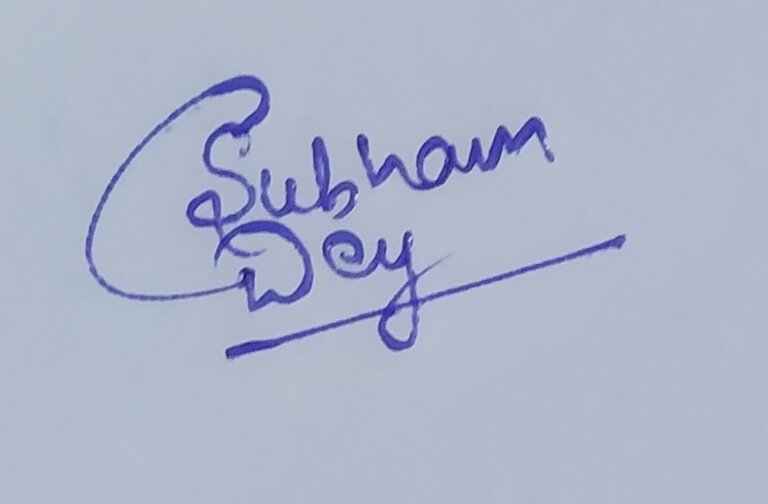 Subham
Dey